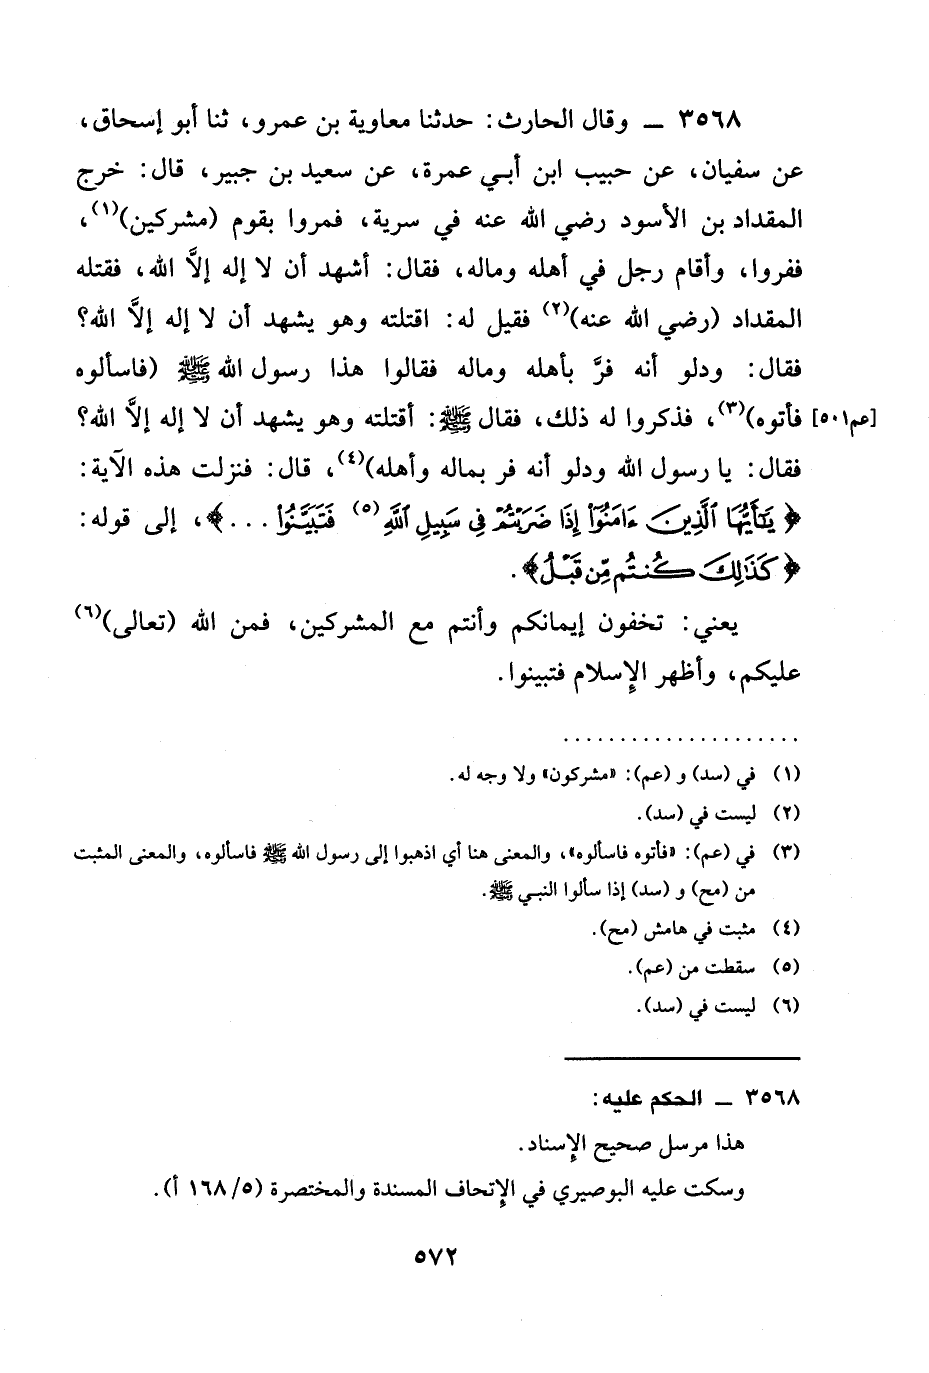 ٣٥٦٨ ـ وقال الحارث: حدثنا معاوية بن عمرو، ثنا أبو إسحاق،
عن سفيان، عن حبيب ابن أبـي عمرة، عن سعيد بن جبير، قال: خرج
المقداد بن الأسود رضي الله عنه في سرية، فمروا بقوم (مشركين)(١)،
ففروا، وأقام رجل في أهله وماله، فقال: أشهد أن لا إله إلاَّ الله، فقتله
المقداد (رضي الله عنه)(٢) فقيل له: اقتلته وهو يشهد أن لا إله إلاَّ الله؟
فقال: ودلو أنه فرَّ بأهله وماله فقالوا هذا رسول الله ﷺ (فاسألوه
[عم٥٠١] فأتوه)(٣)، فذكروا له ذلك، فقال ﷺ: أقتلته وهو يشهد أن لا إله إلاَّ الله؟
فقال: يا رسول الله ودلو أنه فر بماله وأهله)(٤)، قال: فنزلت هذه الآية:
﴿يَٰٓأَيُّهَا ٱلَّذِينَ ءَامَنُوٓا۟ إِذَا ضَرَبْتُمْ فِي سَبِيلِ ٱللَّهِ(٥) فَتَبَيَّنُوا۟ ...﴾، إلى قوله:
﴿كَذَٰلِكَ كُنتُم مِّن قَبْلُ﴾.
يعني: تخفون إيمانكم وأنتم مع المشركين، فمن الله (تعالى)(٦)
عليكم، وأظهر الإسلام فتبينوا.
....................
(١) في (سد) و (عم): «مشركون» ولا وجه له.
(٢) ليست في (سد).
(٣) في (عم): «فأتوه فاسألوه»، والمعنى هنا أي اذهبوا إلى رسول الله ﷺ فاسألوه، والمعنى المثبت
من (مح) و (سد) إذا سألوا النبـي ﷺ.
(٤) مثبت في هامش (مح).
(٥) سقطت من (عم).
(٦) ليست في (سد).
٣٥٦٨ ـ الحكم عليه:
هذا مرسل صحيح الإسناد.
وسكت عليه البوصيري في الإتحاف المسندة والمختصرة (٥/ ١٦٨ أ).
٥٧٢